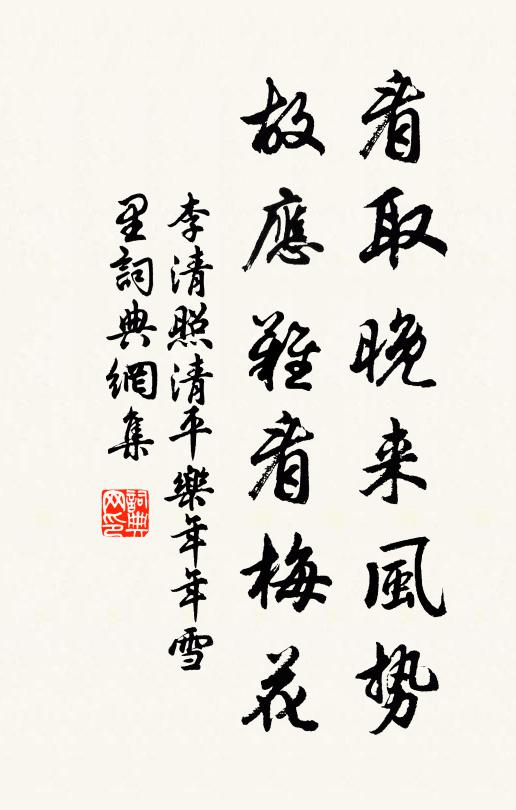 看取晚来風势
故應難看梅花
李清照清平樂年年雪
里詞典網集
詞典网印